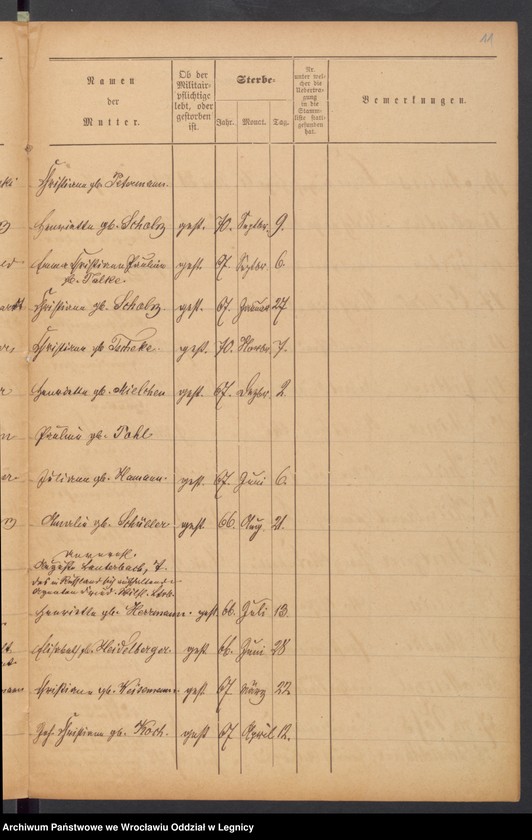 11
Namen
der
Mutter.
Ob der
Militair-
pflichtige
lebt, oder
gestorben
ist.
Sterbe-
Jahr. Monat. Tag.
Nr.
unter wel-
cher die
Uebertra-
gung
in die
Stamm-
liste statt-
gefunden
hat.
Bemerkungen.
Christiane gb. Petermann.
Henriette gb. Scholz gest. 70. Septbr. 9.
Emma Christiane Pauline gest. 67. Septbr. 6.
gb.
Christiane gb. Scholz gest. 67. Januar 27
Christiane gb. gest. 70. Novbr. 7.
Henriette gb. Mielchen gest. 67. Dezbr. 2.
Pauline gb. Pohl
Juliane gb. Hamann. gest. 67. Juni 6.
Amalie gb. Schüller gest 66. Aug. 21.
unverehl.
Auguste Lauterbach, T.
des in Rußland sich aufhaltenden
Henriette gb. Herrmann. gest. 66. Juli 13.
Elisabeth gb. Heidelberger. gest 66. Juni 28
Christiane gb. Weidemann. gest 67. März 22.
Joh. Christiane gb. Koch. gest 67 April 12.
Archiwum Państwowe we Wrocławiu Oddział w Legnicy